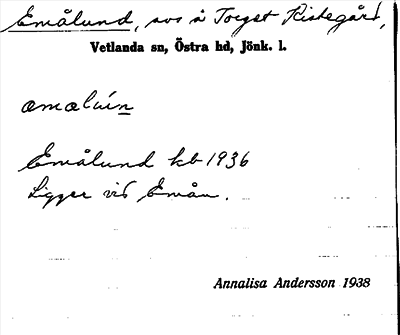 Emålund, avs å Torget Ristegård,
Vetlanda sn, Östra hd, Jönk. l.
Emålund kb 1936
Ligger vid Emån.
Annalisa Andersson 1938